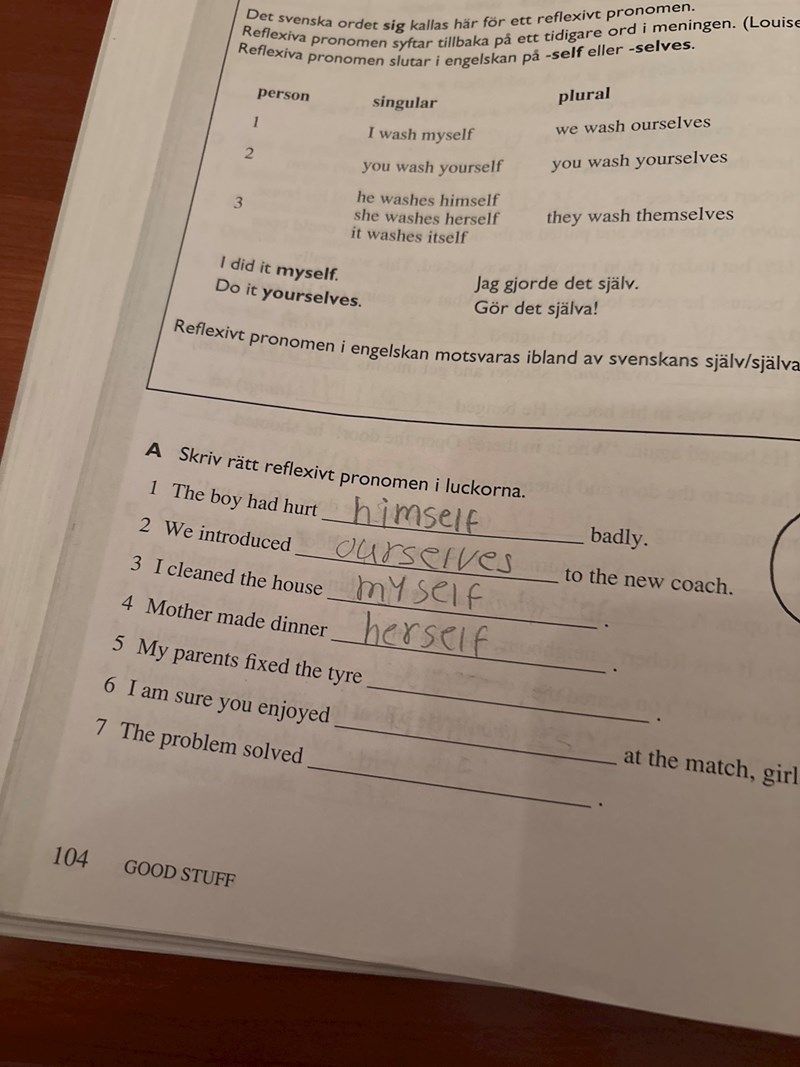 Det svenska ordet sig kallas här för ett reflexivt pronomen.
Reflexiva pronomen syftar tillbaka på ett tidigare ord i meningen. (Louise
Reflexiva pronomen slutar i engelskan på -self eller -selves.
person singular plural
1 I wash myself we wash ourselves
2 you wash yourself you wash yourselves
3 he washes himself
she washes herself they wash themselves
it washes itself
I did it myself. Jag gjorde det själv.
Do it yourselves. Gör det själva!
Reflexivt pronomen i engelskan motsvaras ibland av svenskans själv/själva
A Skriv rätt reflexivt pronomen i luckorna.
1 The boy had hurt himself badly.
2 We introduced ourselves to the new coach.
3 I cleaned the house myself.
4 Mother made dinner herself.
5 My parents fixed the tyre .
6 I am sure you enjoyed at the match, girl
7 The problem solved .
104 GOOD STUFF